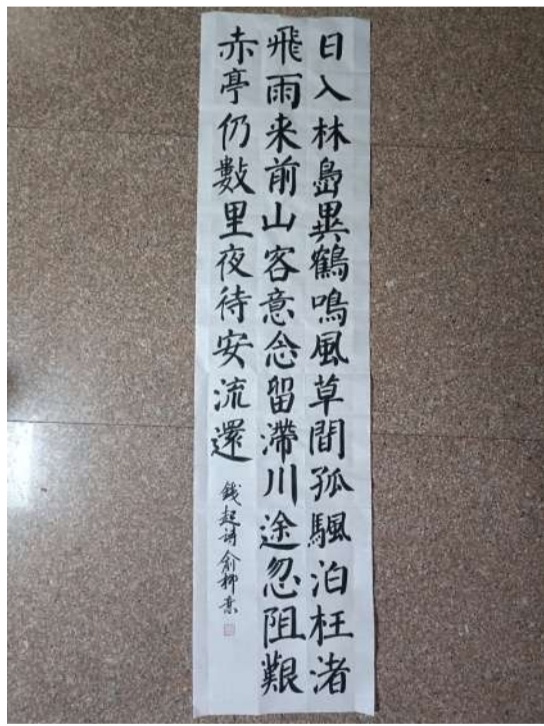 日入林島異鶴鳴風草間孤颿泊枉渚
飛雨来前山客意念留滯川途忽阻艱
赤亭仍數里夜待安流還
錢起詩俞柳